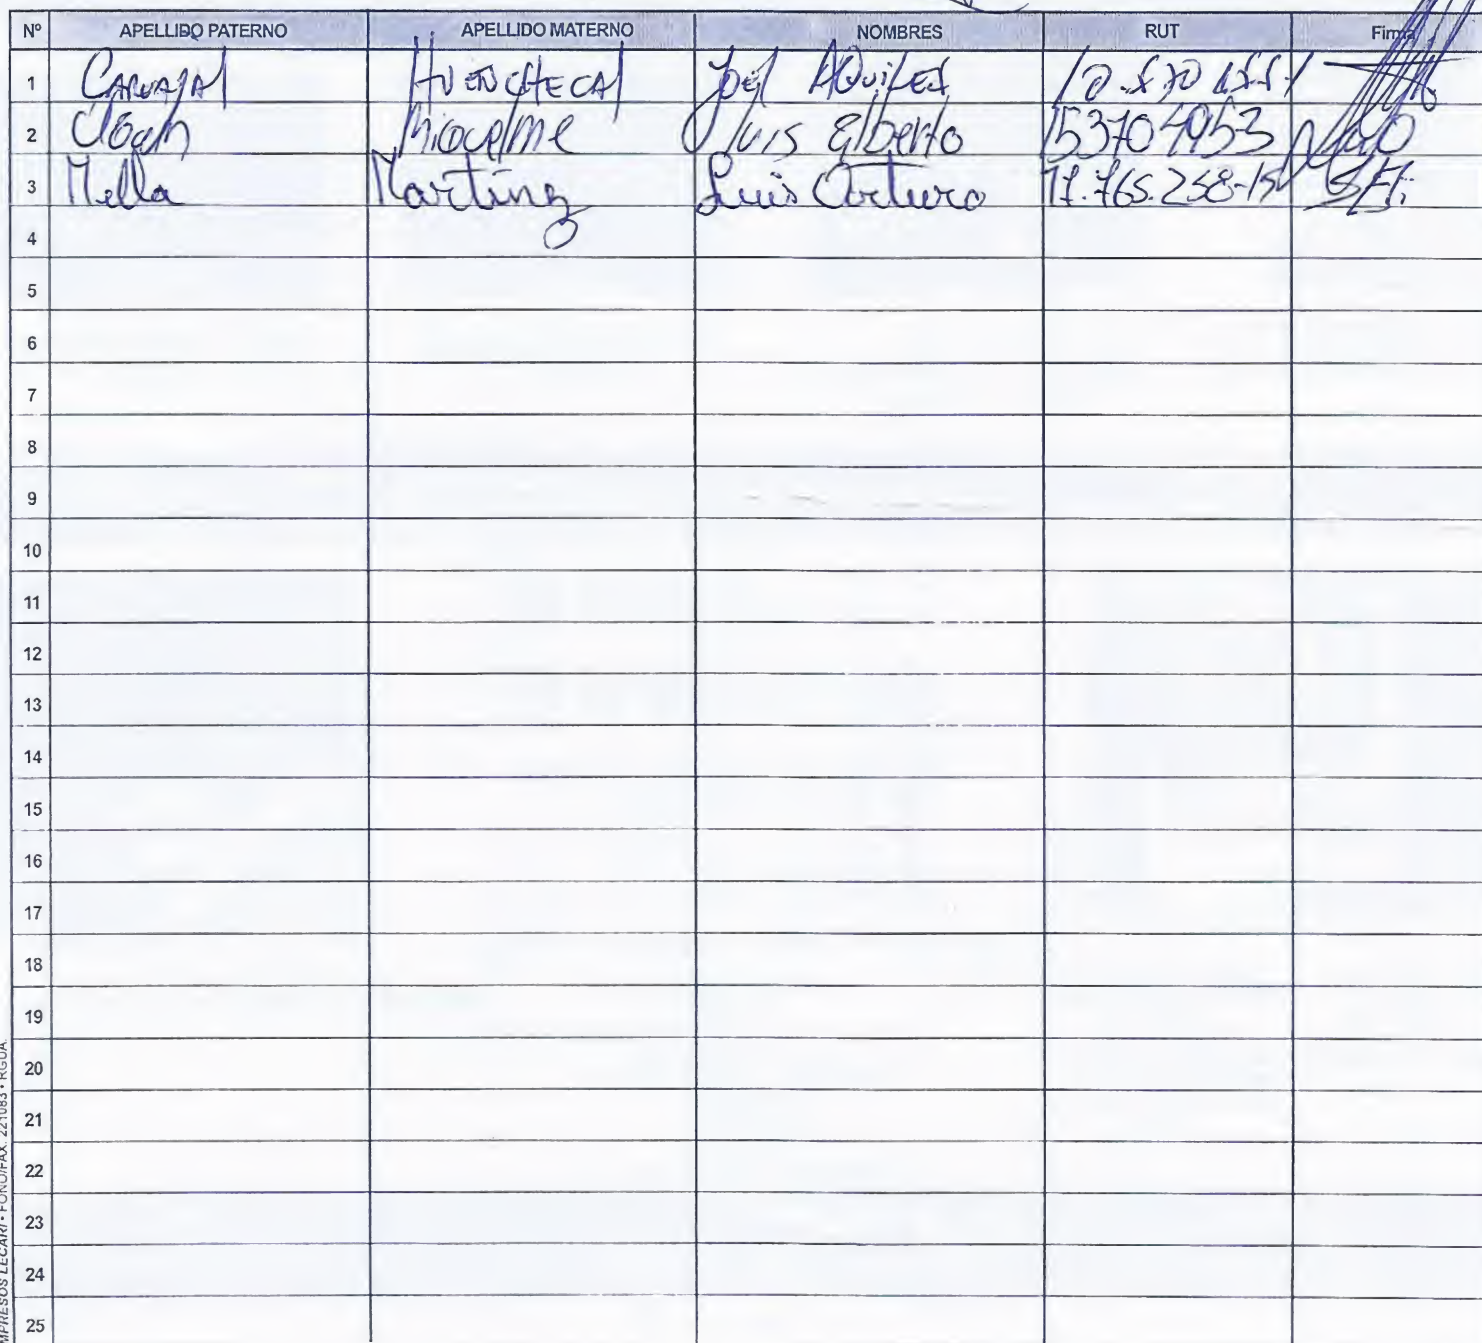 Nº APELLIDO PATERNO APELLIDO MATERNO NOMBRES RUT Firma
1 CARVAJAL HUENCHECAL JOEL AQUILES
2 Luis Alberto 15370495-3
3 Mella Martinz Luis Arturo
4
5
6
7
8
9
10
11
12
13
14
15
16
17
18
19
20
21
22
23
24
25
IMPRESOS LECARI • FONO/FAX: 221083 • RGUA.